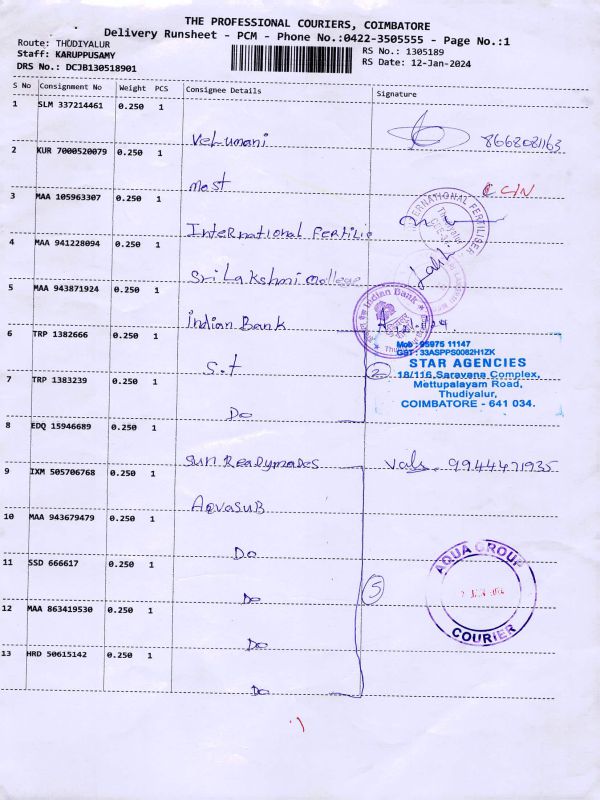 THE PROFESSIONAL COURIERS, COIMBATORE
Delivery Runsheet - PCM - Phone No.:0422-3505555 - Page No.:1
Route: THUDIYALUR
RS No.: 1305189
Staff: KARUPPUSAMY
RS Date: 12-Jan-2024
DRS No.: DCJB130518901
S No Consignment No Weight PCS Consignee Details Signature
1 SLM 337214461 0.250 1
Velumani 8668081163
2 KUR 7000520079 0.250 1
mast C C/N
3 MAA 105963307 0.250 1
International Fertilis
INTERNATIONAL FERTILISER
4 MAA 941228094 0.250 1
Sri Lakshmi College
5 MAA 943871924 0.250 1
Indian Bank
Indian Bank
6 TRP 1382666 0.250 1
S.t 2
Mob : 95975 11147
GST : 33ASPPS0082H1ZK
STAR AGENCIES
18/116,Saravana Complex,
Mettupalayam Road,
Thudiyalur,
COIMBATORE - 641 034.
7 TRP 1383239 0.250 1
Do
8 EDQ 15946689 0.250 1
Sun Readymades Vals. 9944471935
9 IXM 505706768 0.250 1
AqvasuB
10 MAA 943679479 0.250 1
Do
AQUA GROUP
COURIER
11 SSD 666617 0.250 1
Do 5
12 MAA 863419530 0.250 1
Do
13 HRD 50615142 0.250 1
Do